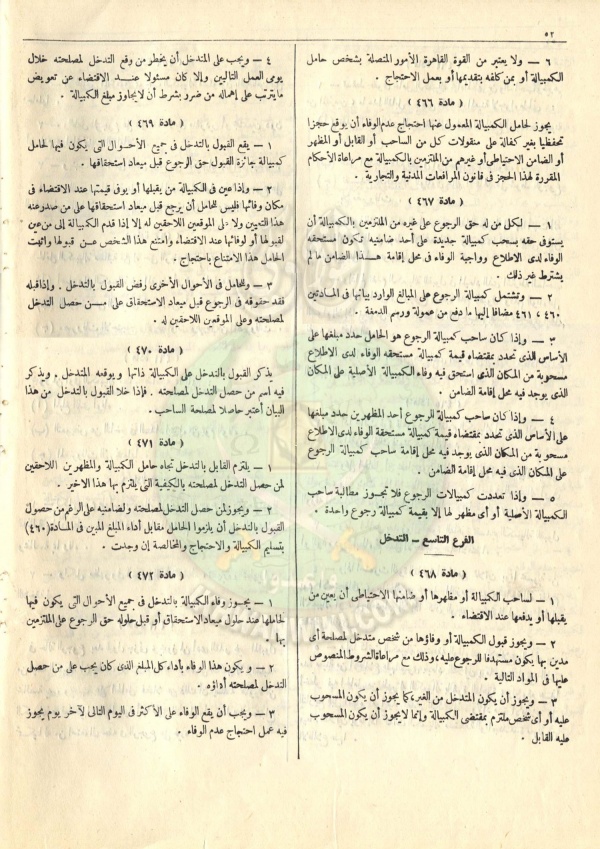 ٥٢
٦ — ولا يعتبر من القوة القاهرة الأمور المتصلة بشخص حامل
الكمبيالة أو بمن كلفه بتقديمها أو بعمل الاحتجاج .
( مادة ٤٦٦ )
يجوز لحامل الكمبيالة المعمول عنها احتجاج عدم الوفاء أن يوقع حجزا
تحفظيا بغير كفالة على منقولات كل من الساحب أو القابل أو المظهر
أو الضامن الاحتياطى أو غيرهم من الملتزمين بالكمبيالة مع مراعاة الأحكام
المقررة لهذا الحجز فى قانون المرافعات المدنية والتجارية .
( مادة ٤٦٧ )
١ — لكل من له حق الرجوع على غيره من الملتزمين بالكمبيالة أن
يستوفى حقه بسحب كمبيالة جديدة على أحد ضامنيه تكون مستحقه
الوفاء لدى الاطلاع وواجبة الوفاء فى محل إقامة هذا الضامن ما لم
يشترط غير ذلك .
٢ — وتشتمل كمبيالة الرجوع على المبالغ الوارد بيانها فى المادتين
٤٦٠ ، ٤٦١ مضافا إليها ما دفع من عمولة ورسم الدمغة .
٣ — وإذا كان ساحب كمبيالة الرجوع هو الحامل حدد مبلغها على
الأساس الذى تحدد بمقتضاه قيمة كمبيالة مستحقه الوفاء لدى الاطلاع
مسحوبة من المكان الذى استحق فيه وفاء الكمبيالة الأصلية على المكان
الذى يوجد فيه محل إقامة الضامن .
٤ — وإذا كان صاحب كمبيالة الرجوع أحد المظهرين حدد مبلغها
على الأساس الذى تحدد بمقتضاه قيمة كمبيالة مستحقة الوفاء لدى الاطلاع
مسحوبة من المكان الذى فيه محل إقامة ساحب كمبيالة الرجوع
على المكان الذى فيه محل إقامة الضامن .
٥ — وإذا تعددت كمبيالات الرجوع فلا تجوز مطالبة ساحب
الكمبيالة الأصلية أو أى مظهر لها إلا بقيمة كمبيالة رجوع واحدة .
الفرع التاسع — التدخل
( مادة ٤٦٨ )
١ — لساحب الكمبيالة أو مظهرها أو ضامنها الاحتياطى أن يعين من
يقبلها أو يدفعها عند الاقتضاء .
٢ — ويجوز قبول الكمبيالة أو وفاؤها من شخص متدخل لمصلحة أى
مدين بها يكون مستهدفا للرجوع عليه ، وذلك مع مراعاة الشروط المنصوص
عليها فى المواد التالية .
٣ — ويجوز أن يكون المتدخل من الغير ، كما يجوز أن يكون المسحوب
عليه أو أى شخص ملتزم بمقتضى الكمبيالة وإنما لا يجوز أن يكون المسحوب
عليه القابل .
٤ — ويجب على المتدخل أن يخطر من وقع التدخل لمصلحته خلال
يومى العمل التاليين وإلا كان مسئولا عند الاقتضاء عن تعويض
ما يترتب على إهماله من ضرر بشرط أن لا يجاوز مبلغ الكمبيالة .
( مادة ٤٦٩ )
١ — يقع القبول بالتدخل فى جميع الأحوال التى يكون فيها لحامل
كمبيالة جائزة القبول حق الرجوع قبل ميعاد استحقاقها .
٢ — وإذا عين فى الكمبيالة من يقبلها أو يوفى قيمتها عند الاقتضاء فى
مكان وفائها فليس للحامل أن يرجع قبل ميعاد استحقاقها على من صدر عنه
هذا التعيين ولا على الموقعين اللاحقين له إلا إذا قدم الكمبيالة إلى من عين
لقبولها أو لوفائها عند الاقتضاء وامتنع هذا الشخص عن قبولها واثبت
الحامل هذا الامتناع باحتجاج .
٣ — وللحامل فى الأحوال الأخرى رفض القبول بالتدخل . وإذا قبله
فقد حقوقه فى الرجوع قبل ميعاد الاستحقاق على من حصل التدخل
لمصلحته وعلى الموقعين اللاحقين له .
( مادة ٤٧٠ )
يذكر القبول بالتدخل على الكمبيالة ذاتها ويوقعه المتدخل . ويذكر
فيه اسم من حصل التدخل لمصلحته . فإذا خلا القبول بالتدخل من هذا
البيان أعتبر حاصلا لمصلحة الساحب .
( مادة ٤٧١ )
١ — يلتزم القابل بالتدخل تجاه حامل الكمبيالة والمظهرين اللاحقين
لمن حصل التدخل لمصلحته بالكيفية التى يلتزم بها هذا الاخير .
٢ — ويجوز لمن حصل التدخل لمصلحته ولضامنيه على الرغم من حصول
القبول بالتدخل أن يلزموا الحامل مقابل أداء المبلغ المبين فى المادة (٤٦٠)
بتسليم الكمبيالة والاحتجاج والمخالصة إن وجدت .
( مادة ٤٧٢ )
١ — يجوز وفاء الكمبيالة بالتدخل فى جميع الأحوال التى يكون فيها
لحاملها عند حلول ميعاد الاستحقاق أو قبل حلوله حق الرجوع على الملتزمين
بها .
٢ — و يكون هذا الوفاء بأداء كل المبلغ الذى كان يجب على من حصل
التدخل لمصلحته أداؤه .
٣ — ويجب أن يقع الوفاء على الأكثر فى اليوم التالى لآخر يوم يجوز
فيه عمل احتجاج عدم الوفاء .